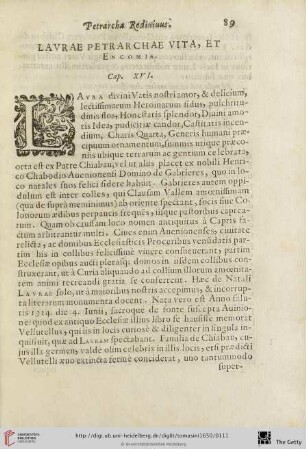 Petrarcha Redivivus. 89
LAVRAE PETRARCHAE VITA, ET
ENCOMIA.
Cap. XVI.
LAVRA divini Vatis nostri amor, & delicium,
lectissimarum Heroinarum sidus, pulchritu-
dinis flos, Honestatis splendor, Divini amo-
ris Idea, pudicitiæ candor, Castitatis incen-
dium, Charis Quarta, Generis humani præ-
cipuum ornamentum, summis utique præco-
niis ubique terrarum ac gentium celebrata,
orta est ex Patre Chiabau, vel ut alas placet ex nobili Henri-
co Chabodio Avenionensi Domino de Gabrieres, quo in lo-
co natales suos felici sidere habuit. Gabrieres autem oppi-
dulum est inter colles, qui Clausam Vallem amœnissimam
(qua de supra meminimus) ab oriente spectant, sociis suæ Co-
loniorum ædibus perpaucis septus, iisque pastoribus caprea-
rum. Quam ob causam loco nomen antiquitus à Capris fa-
ctum arbitrantur multi. Cives enim Avenionenses, civitate
relicta, ac domibus Ecclesiasticis Proceribus venditatis partim
his in collibus felicissimè vineæ consitæ erant; partim
Ecclesiæ opibus aucti plerasq. domos in iisdem collibus con-
struxerant, ut à Curia aliquando ad collium illorum amœnita-
tem animi recreandi gratia se conferrent. Hæc de Natali
LAVRAE solo, ut à maioribus nostris accepimus, & incorru-
pta literarum monumenta docent. Nata vero est Anno salu-
tis 1314. die 4. Iunii, sacroque de fonte suscepta Avinio-
nei quod ex antiquo Ecclesiæ illius libro se hausisse memorat
Vellutellus, quovis in locis curiosè & diligenter in singula in-
quisivit, quæ ad LAVRAM spectabant. Familia de Chiabau, cu-
jus villa germen, valde olim celebris in illis locis, et si prædicti
Vellutelli ævo extincta fermè conciderat, uno tantummodo
super-
http://digi.ub.uni-heidelberg.de/diglit/tomasini1650/0111
© Universitätsbibliothek Heidelberg
UNIVERSITÄTS-
BIBLIOTHEK
HEIDELBERG
The Getty